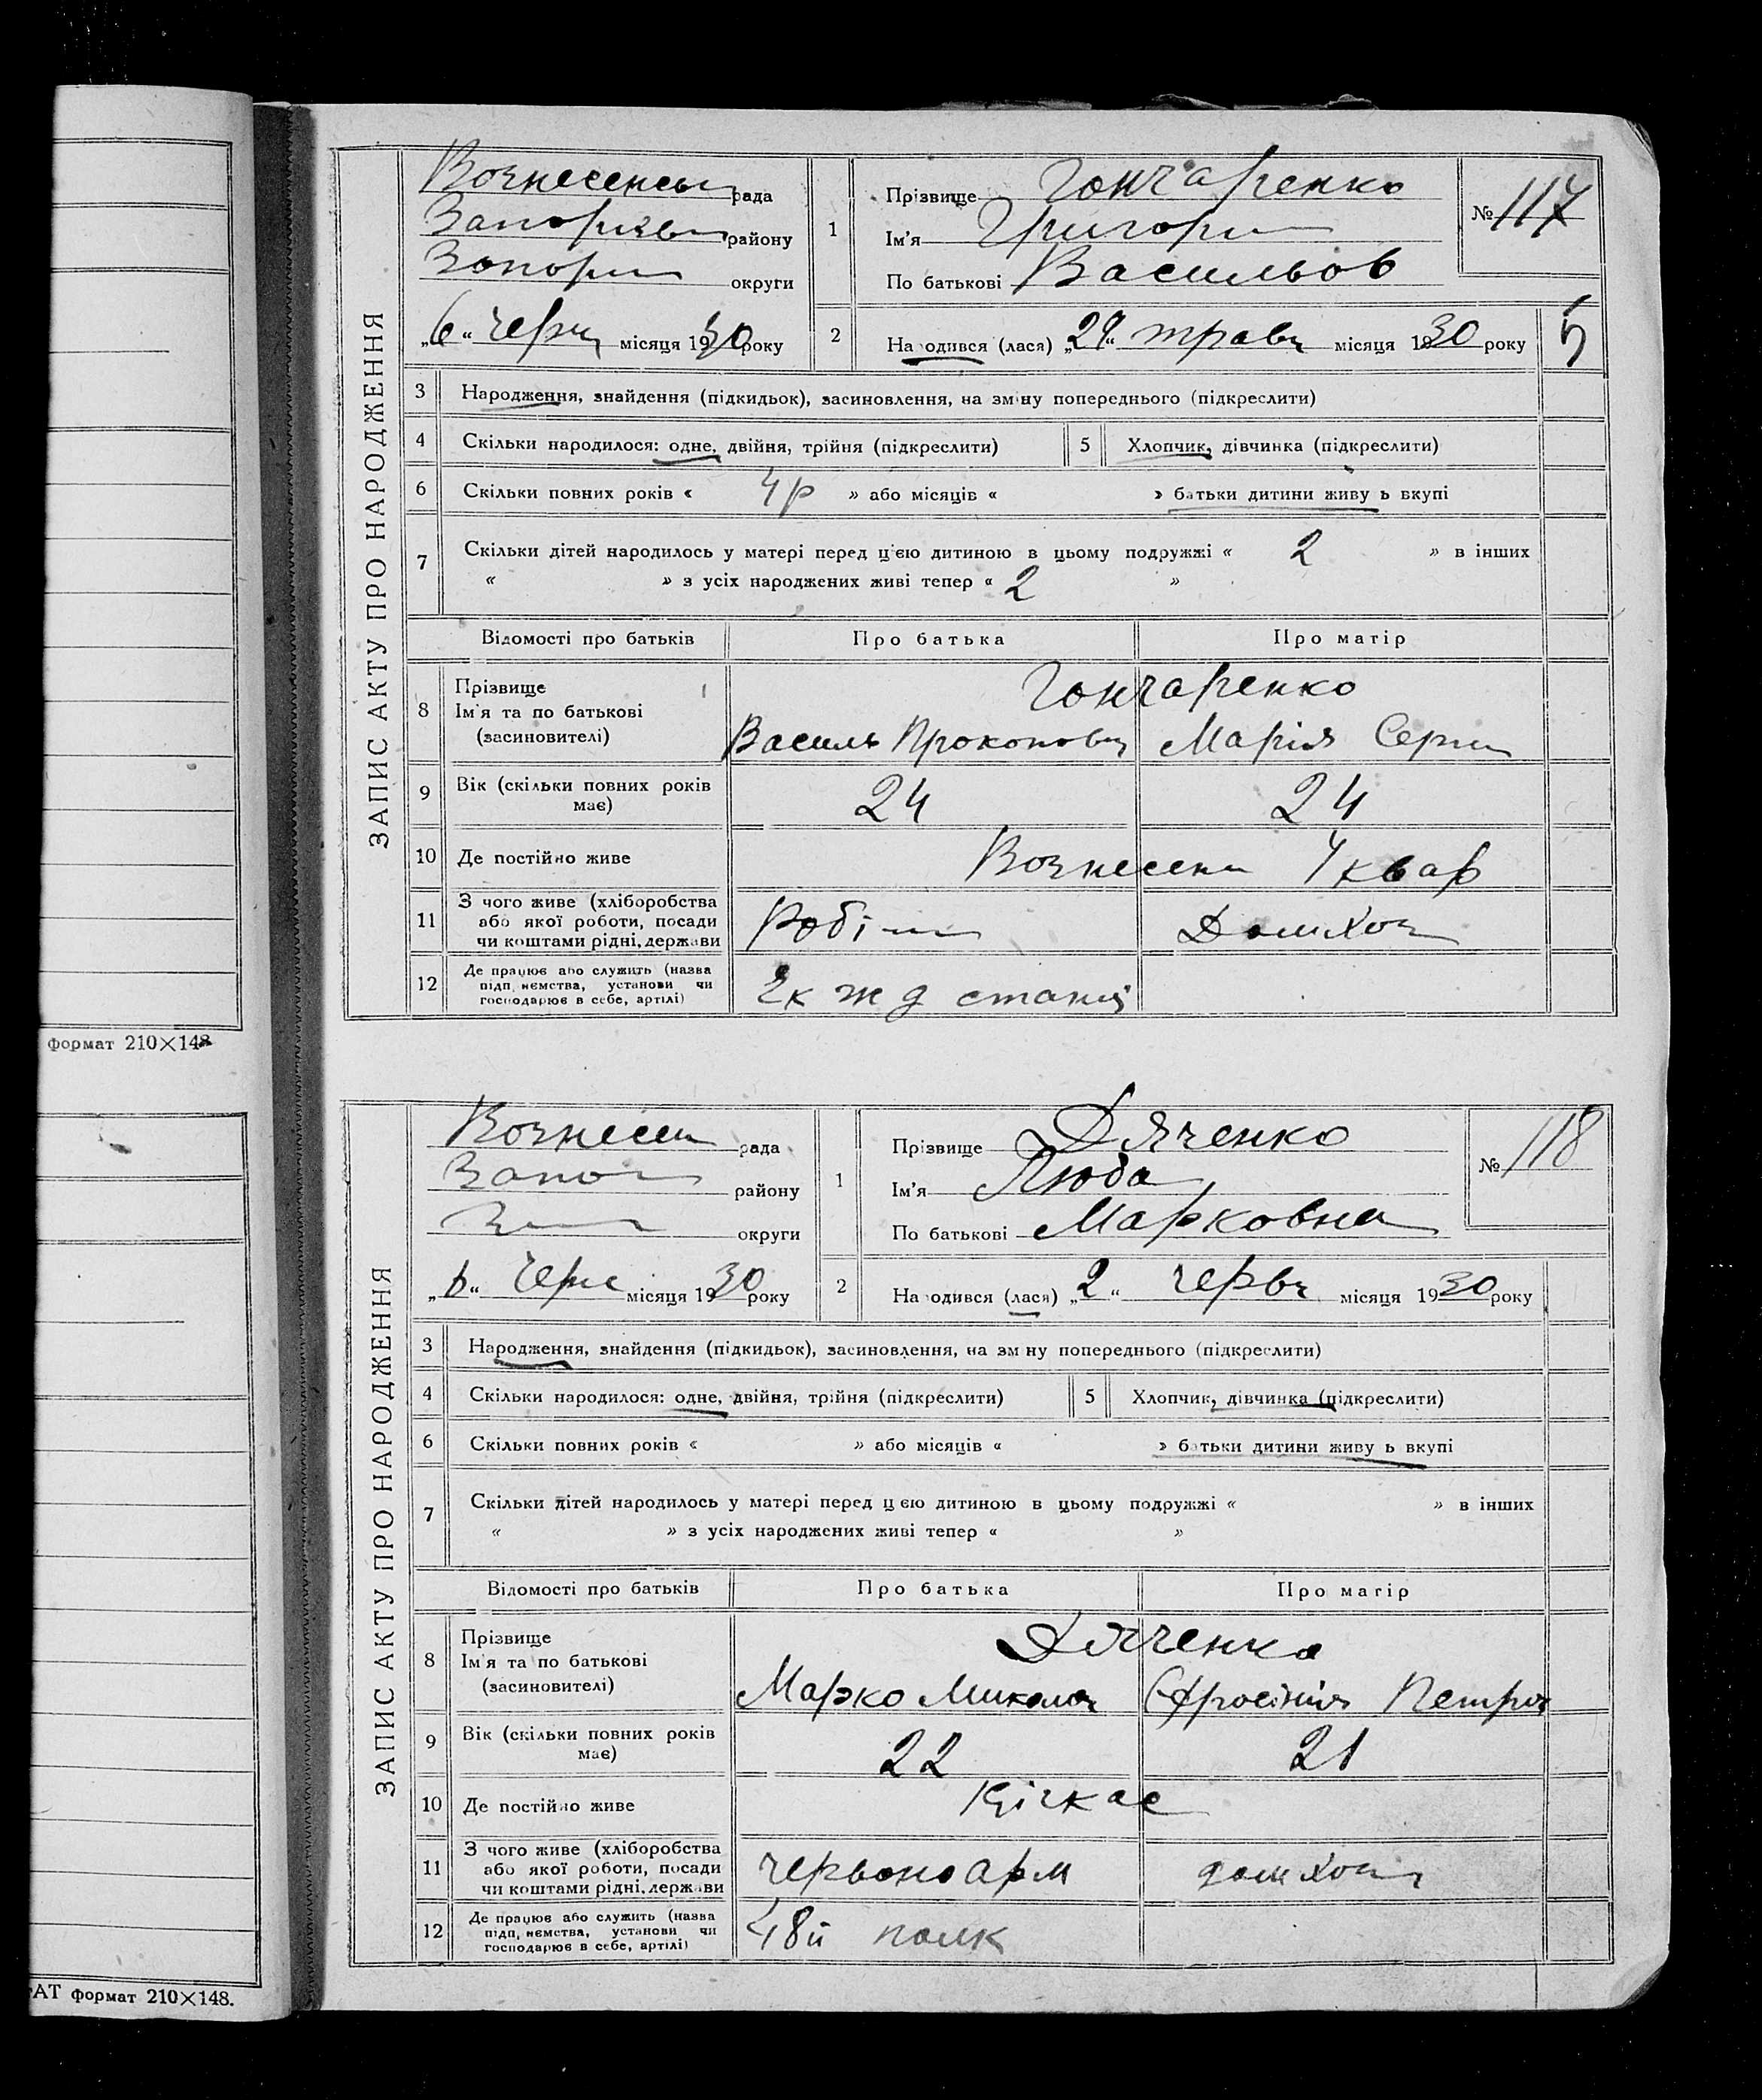 формат 210×148
РАТ формат 210×148.
ЗАПИС АКТУ ПРО НАРОДЖЕННЯ
Вознесенськ рада
Запорізьк району
Запоріз округи
„6“ черн місяця 1930 року
1 Прізвище Гончаренко
Ім'я Григорі
По батькові Васильов
№ 117
2 Народився (лася) „29“ травн місяця 1930 року
5
3 Народження, знайдення (підкидьок), засиновлення, на зміну попереднього (підкреслити)
4 Скільки народилося: одне, двійня, трійня (підкреслити) 5 Хлопчик, дівчинка (підкреслити)
6 Скільки повних років « 4р » або місяців « » батьки дитини живуть вкупі
7 Скільки дітей народилось у матері перед цією дитиною в цьому подружжі « 2 » в інших
« » з усіх народжених живі тепер « 2 »
Відомості про батьків Про батька Про матір
8 Прізвище
Ім'я та по батькові
(засиновителі)
Гончаренко
Василь Прокопович Марія Серги
9 Вік (скільки повних років має) 24 24
10 Де постійно живе Вознесенк 4 квар
11 З чого живе (хліборобства
або якої роботи, посади
чи коштами рідні, держави
Робітн Домхоз
12 Де працює або служить (назва
підприємства, установи чи
господарює в себе, артілі)
2к ж д станці
ЗАПИС АКТУ ПРО НАРОДЖЕННЯ
Вознесен рада
Запо району
З округи
„6“ Черне місяця 1930 року
1 Прізвище Дяченко
Ім'я Люба
По батькові Марковна
№ 118
2 Народився (лася) „2“ червн місяця 1930 року
3 Народження, знайдення (підкидьок), засиновлення, на зміну попереднього (підкреслити)
4 Скільки народилося: одне, двійня, трійня (підкреслити) 5 Хлопчик, дівчинка (підкреслити)
6 Скільки повних років « » або місяців « » батьки дитини живуть вкупі
7 Скільки дітей народилось у матері перед цією дитиною в цьому подружжі « » в інших
« » з усіх народжених живі тепер « »
Відомості про батьків Про батька Про матір
8 Прізвище
Ім'я та по батькові
(засиновителі)
Дяченко
Марко Миколов Єфросінія Петров
9 Вік (скільки повних років має) 22 21
10 Де постійно живе Кічкас
11 З чого живе (хліборобства
або якої роботи, посади
чи коштами рідні, держави
червоноарм домхоз
12 Де працює або служить (назва
підприємства, установи чи
господарює в себе, артілі)
48й полк